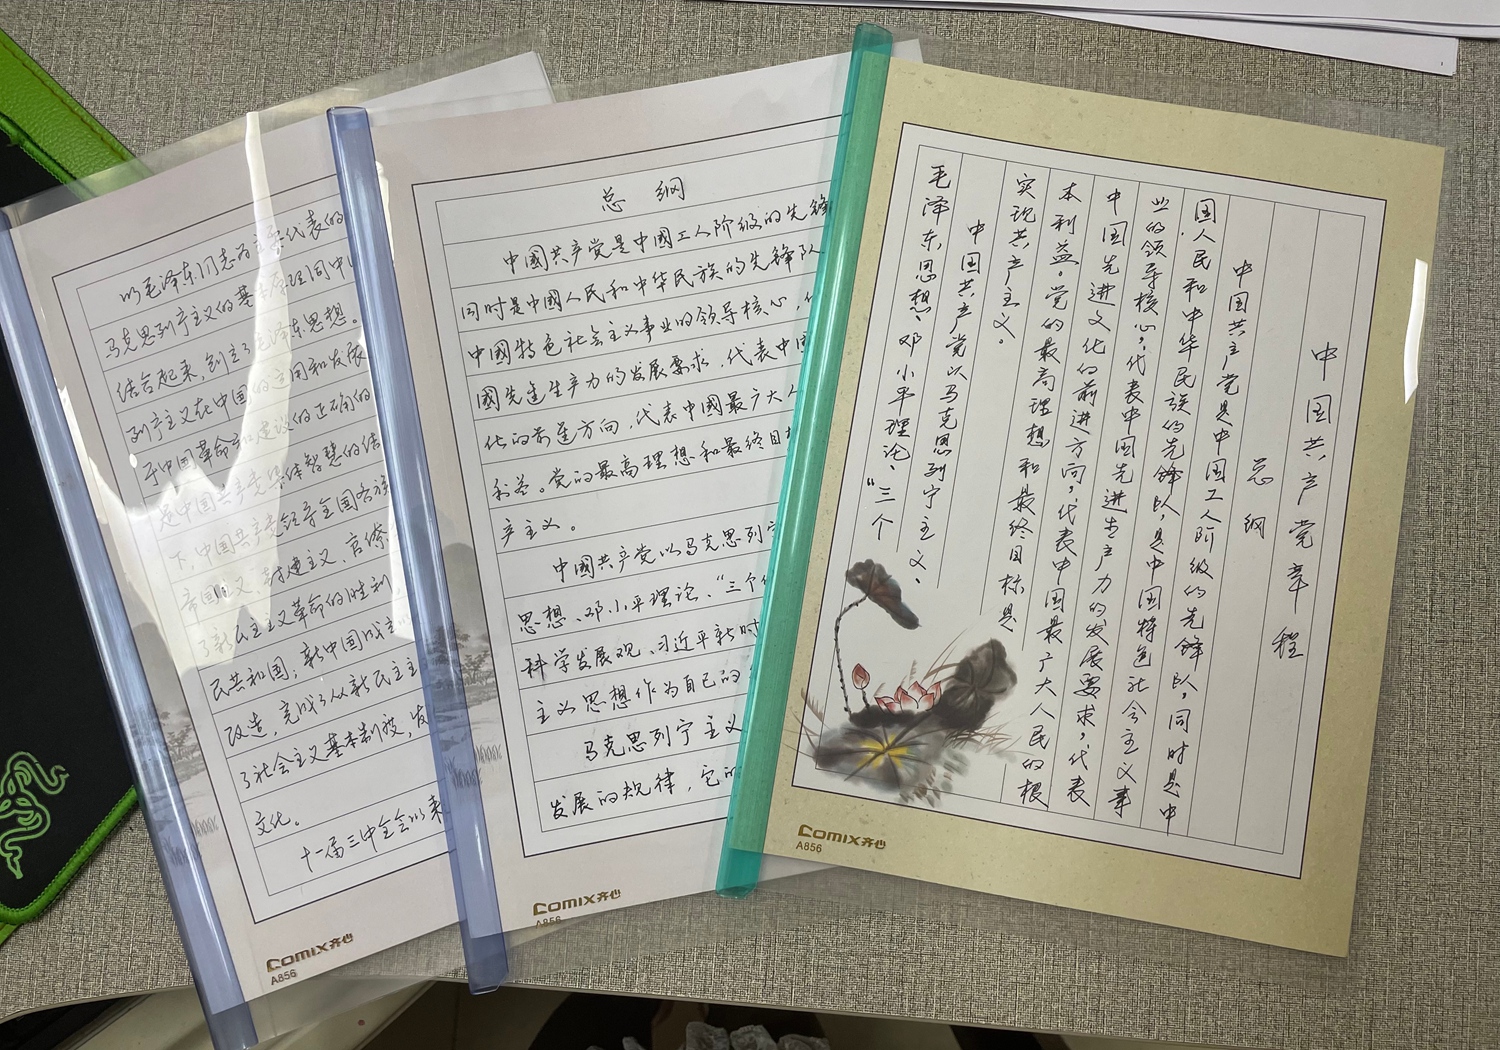 以毛泽东同志为主要代表的
马克思列宁主义的基本原理同中
结合起来，创立了毛泽东思想。
列宁主义在中国的运用和发展
于中国革命和建设的正确的
是中国共产党集体智慧的结
下，中国共产党领导全国各族
帝国主义、封建主义、官僚
了新民主主义革命的胜利
民共和国；新中国成立
改造，完成了从新民主主
了社会主义基本制度，发
文化。
十一届三中全会以来
Comix齐心
A856
总 纲
中國共产党是中國工人阶级的先锋
同时是中國人民和中华民族的先锋队
中國特色社会主义事业的领导核心，代
國先进生产力的发展要求，代表中國
化的前进方向，代表中國最广大人
利益。党的最高理想和最终目
产主义。
中國共产党以马克思列宁
思想、邓小平理论、“三个代
科学发展观、习近平新时
主义思想作为自己的
马克思列宁主义
发展的规律，它的
Comix齐心
A856
中国共产党章程
总纲
中国共产党是中国工人阶级的先锋队，同时是中
国人民和中华民族的先锋队，是中国特色社会主义事
业的领导核心，代表中国先进生产力的发展要求，代表
中国先进文化的前进方向，代表中国最广大人民的根
本利益。党的最高理想和最终目标是
实现共产主义。
中国共产党以马克思列宁主义、
毛泽东思想、邓小平理论、“三个
Comix齐心
A856